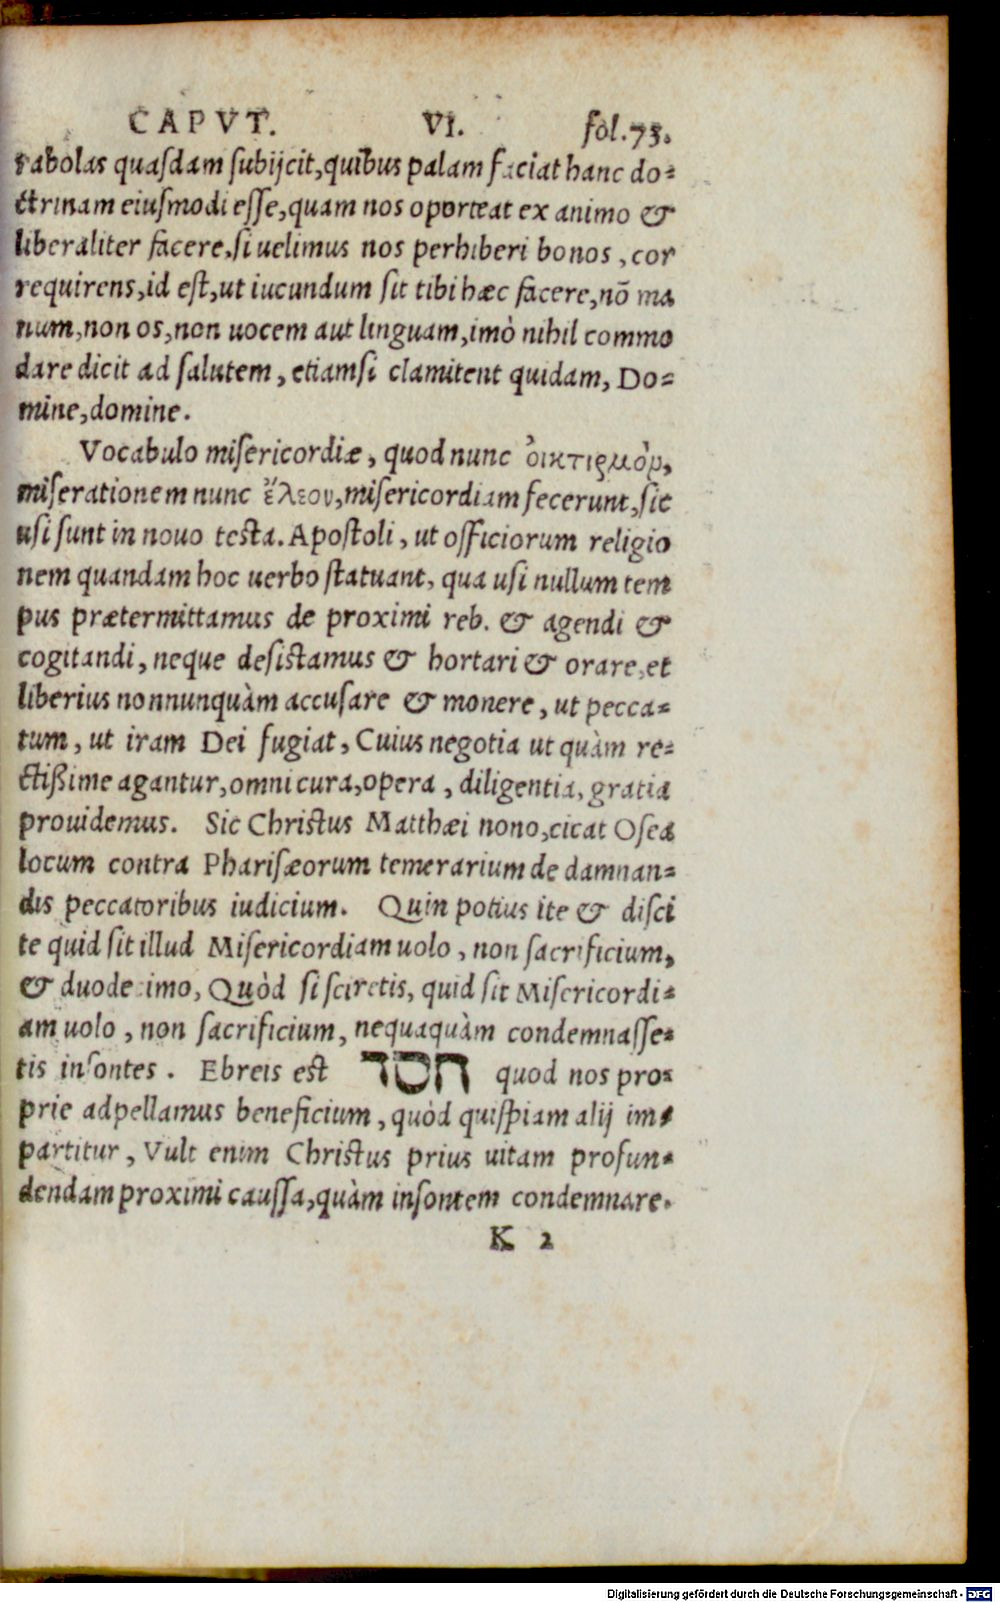 CAPVT. VI. fol. 73.
rabolas quasdam subijcit, quibus palam faciat hanc do=
ctrinam eiusmodi esse, quam nos oporteat ex animo &
liberaliter facere, si uelimus nos perhiberi bonos, cor
requirens, id est, ut iucundum sit tibi hæc facere, nõ ma
num, non os, non uocem aut linguam, imò nihil commo
dare dicit ad salutem, etiamsi clamitent quidam, Do=
mine, domine.
Vocabulo misericordiæ, quod nunc οἰκτιρμὸν,
miserationem nunc ἔλεον, misericordiam fecerunt, sic
usi sunt in nouo testa. Apostoli, ut officiorum religio
nem quandam hoc uerbo statuant, qua usi nullum tem
pus prætermittamus de proximi reb. & agendi &
cogitandi, neque desistamus & hortari & orare, et
liberius nonnunquàm accusare & monere, ut pecca=
tum, ut iram Dei fugiat, Cuius negotia ut quàm re=
ctißime agantur, omni cura, opera, diligentia, gratia
prouidemus. Sic Christus Matthæi nono, citat Oseæ
locum contra Pharisæorum temerarium de damnan=
dis peccatoribus iudicium. Quin potius ite & disci
te quid sit illud Misericordiam uolo, non sacrificium,
& duodecimo, Quòd si sciretis, quid sit Misericordi=
am uolo, non sacrificium, nequaquàm condemnasse=
tis insontes. Ebreis est חסד quod nos pro=
prie adpellamus beneficium, quòd quispiam alij im=
partitur, Vult enim Christus prius uitam profun=
dendam proximi caussa, quàm insontem condemnare.
K 2
Digitalisierung gefördert durch die Deutsche Forschungsgemeinschaft - DFG